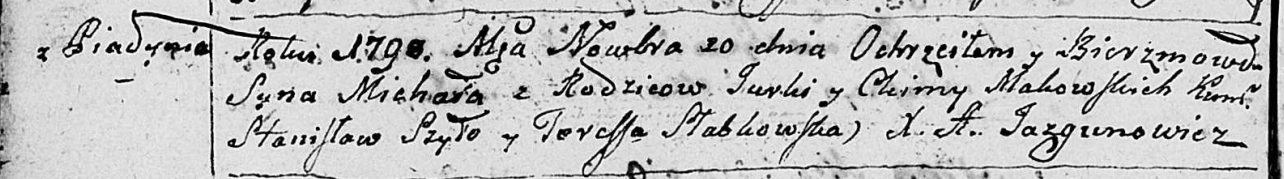 z Piadynia
Roku 1798. Msa Nowbra 20 dnia Ochrzciłem y Bierzmowa-
Syna Michała z Rodzicow Jurki y Chimy Makowskich Kum.
Stanisław Szyło y Teressa Słabkowska) X. A. Jazgunowicz